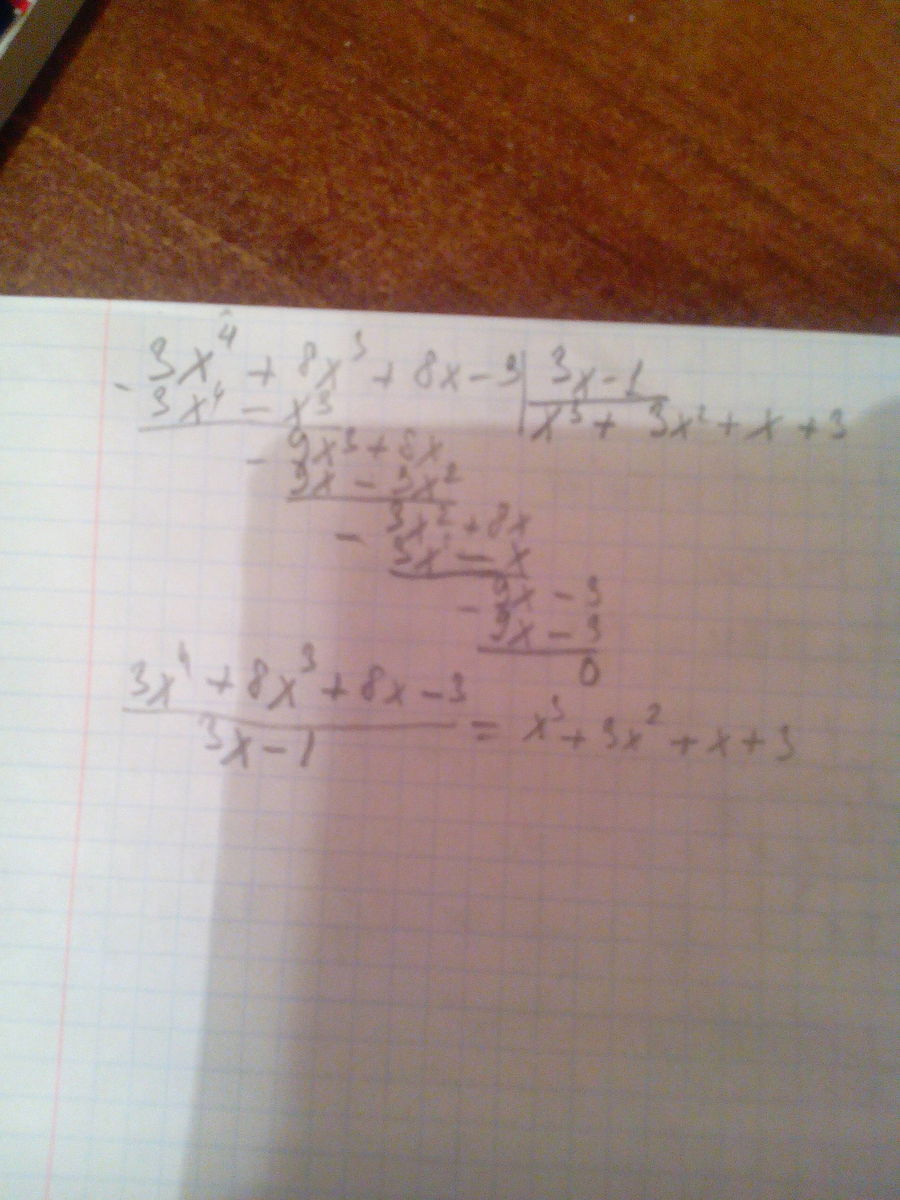 - 3x⁴ + 8x³ + 8x - 3 | 3x - 1
3x⁴ - x³ | x³ + 3x² + x + 3
- 9x³ + 8x
9x - 3x²
- 3x² + 8x
3x² - x
- 9x - 3
9x - 3
0
3x⁴ + 8x³ + 8x - 3
3x - 1 = x³ + 3x² + x + 3